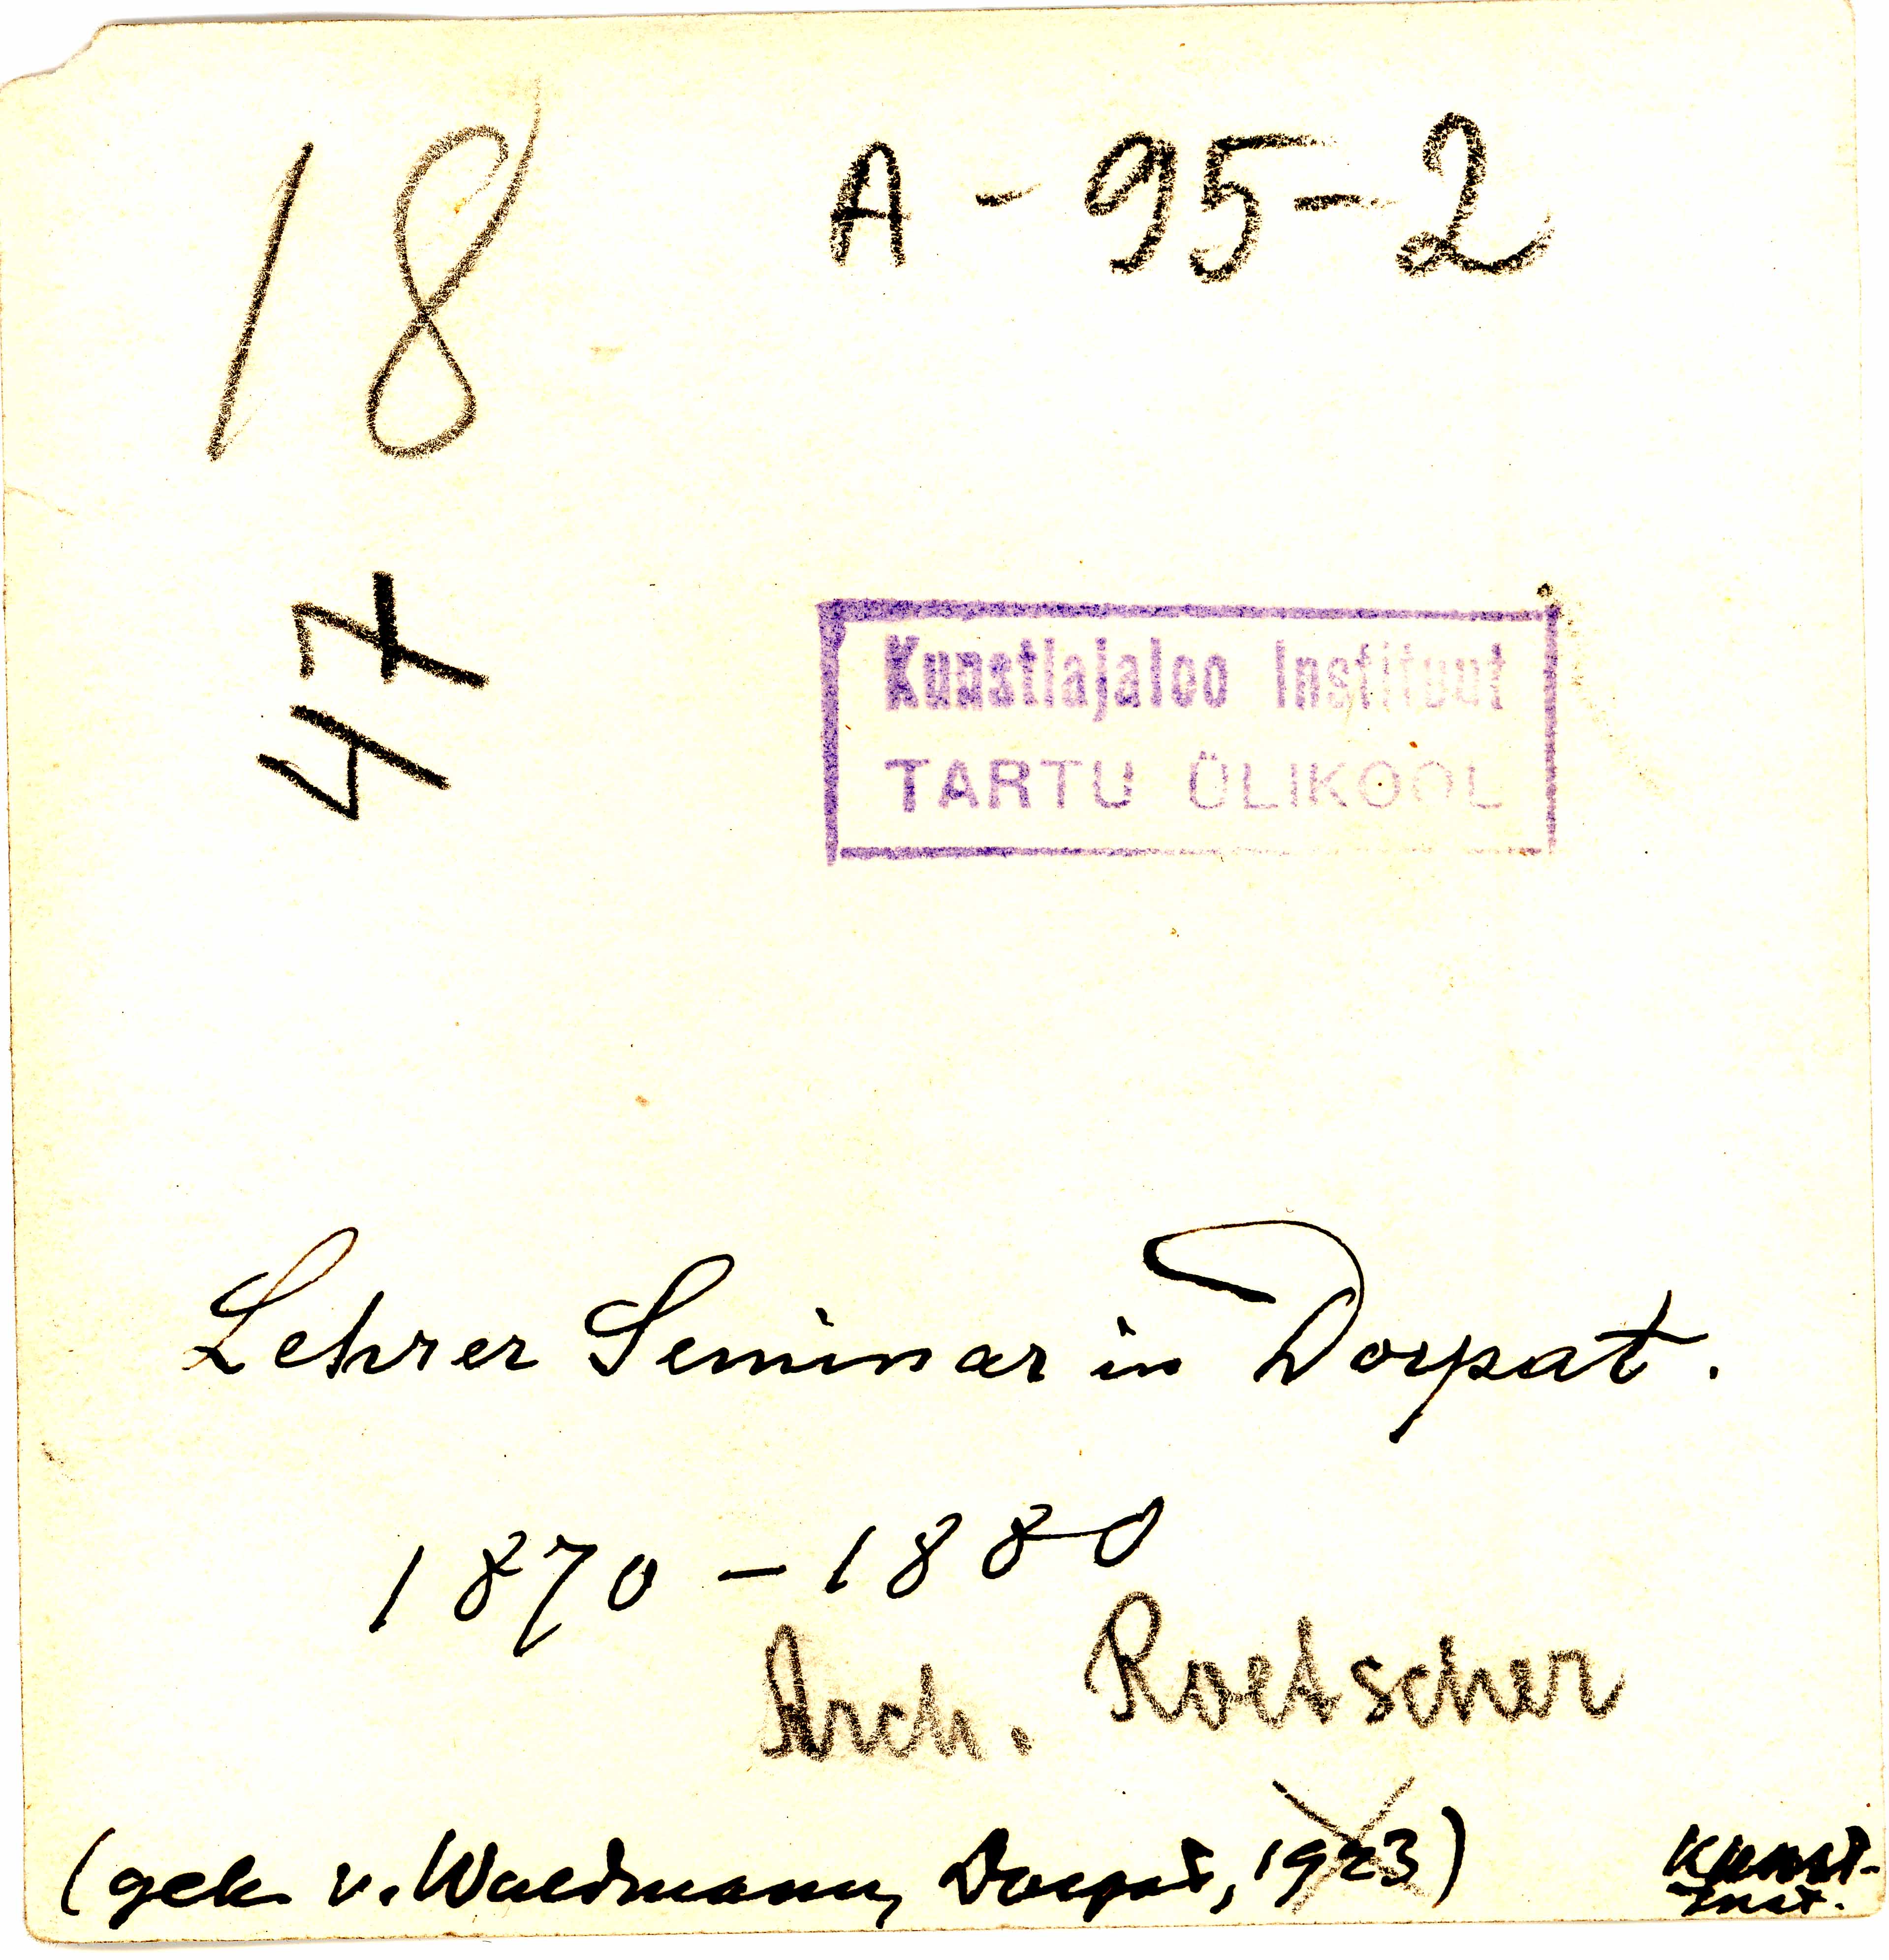 18
A-95-2
47
Kunstiajaloo Instituut
TARTU ÜLIKOOL
Lehrer Seminar in Dorpat.
1870-1880
Arch. Roetscher
(gek. v. Waldmann, Dorpat, 1923)
Kunst-
Inst.